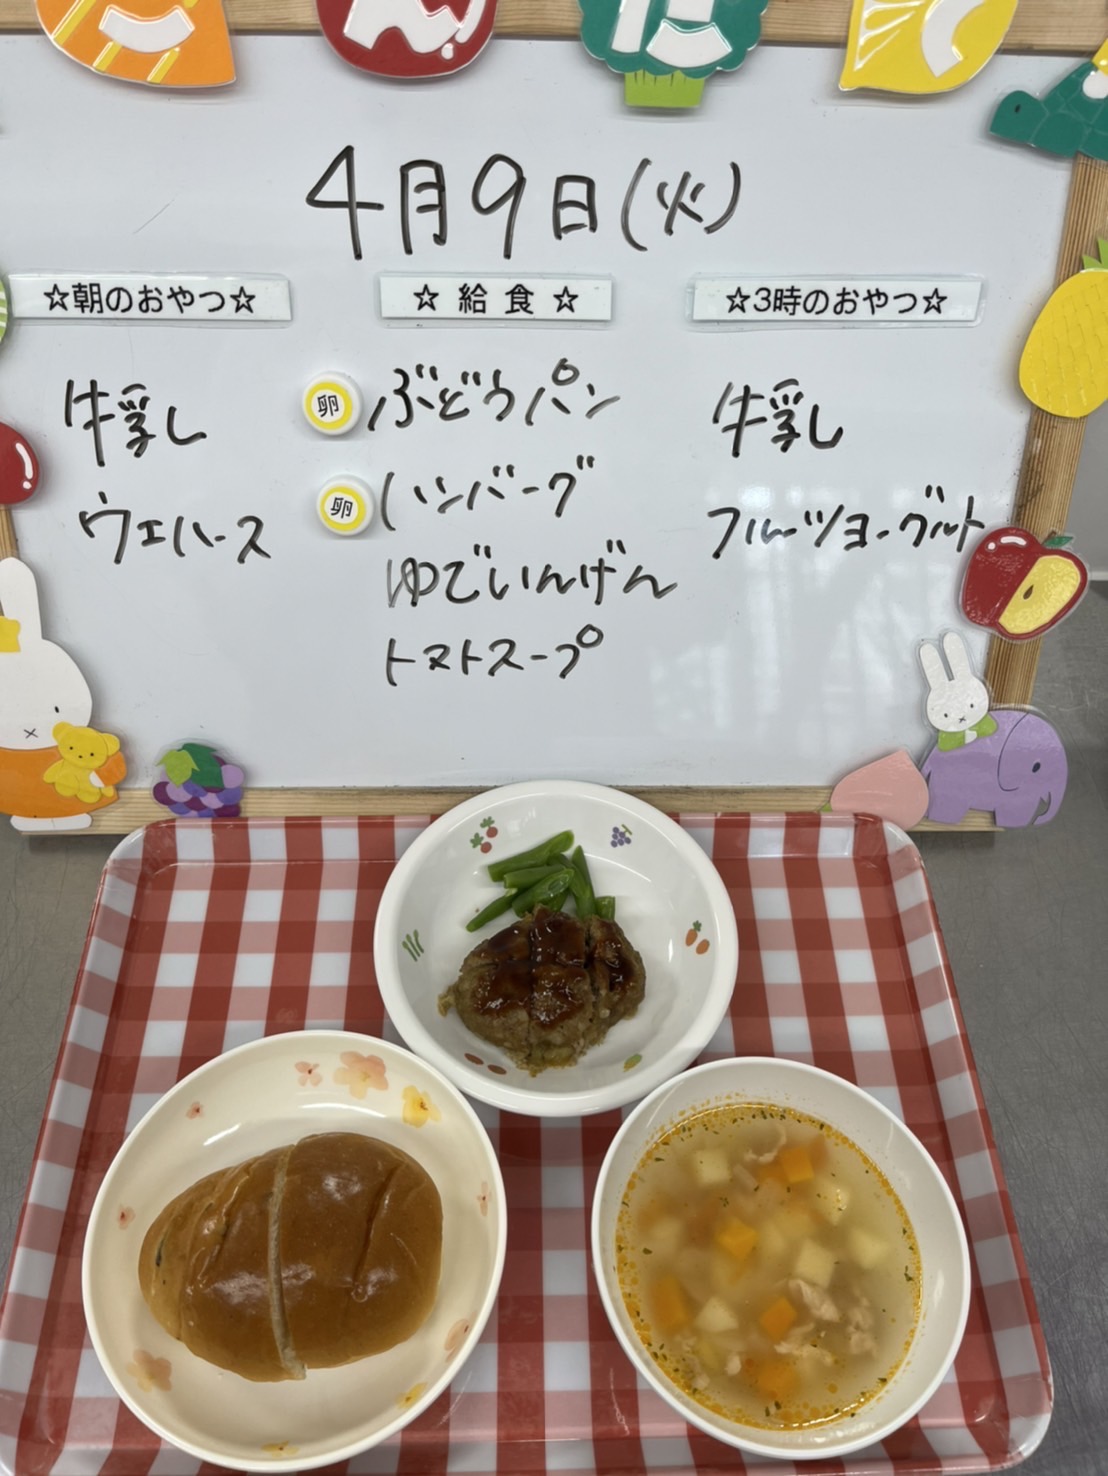 こんだて
4月9日(火)
☆朝のおやつ☆
牛乳
ウエハース
☆給食☆
卵 ぶどうパン
卵 ハンバーグ
ゆでいんげん
トマトスープ
☆3時のおやつ☆
牛乳
フルーツヨーグルト